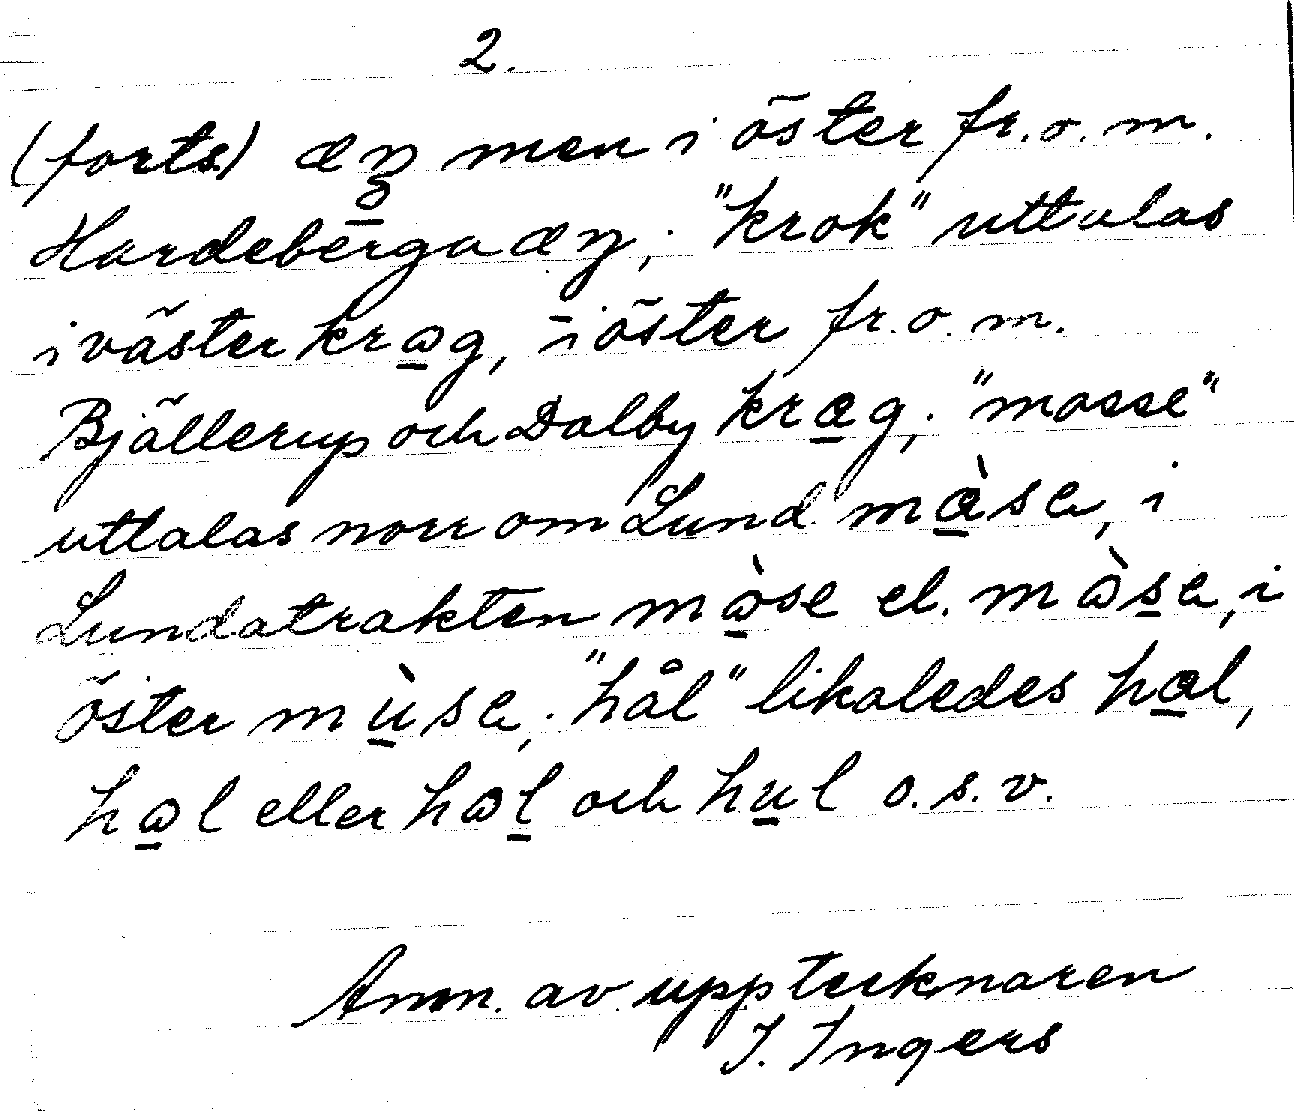 2.
(forts.) æŋ men i öster fr.o.m.
Hardeberga æŋ; "krok" uttalas
i väster krɷg, i öster fr.o.m.
Bjällerup och Dalby kræg; "mosse"
uttalas norr om Lund mæ̀sa, i
Lundatrakten mɷ̀se el. mɷ̀sa, i
öster mùsa; "hål" likaledes hæl,
hɷl eller hɷl och hul o.s.v.
Anm. av upptecknaren
I. Ingers